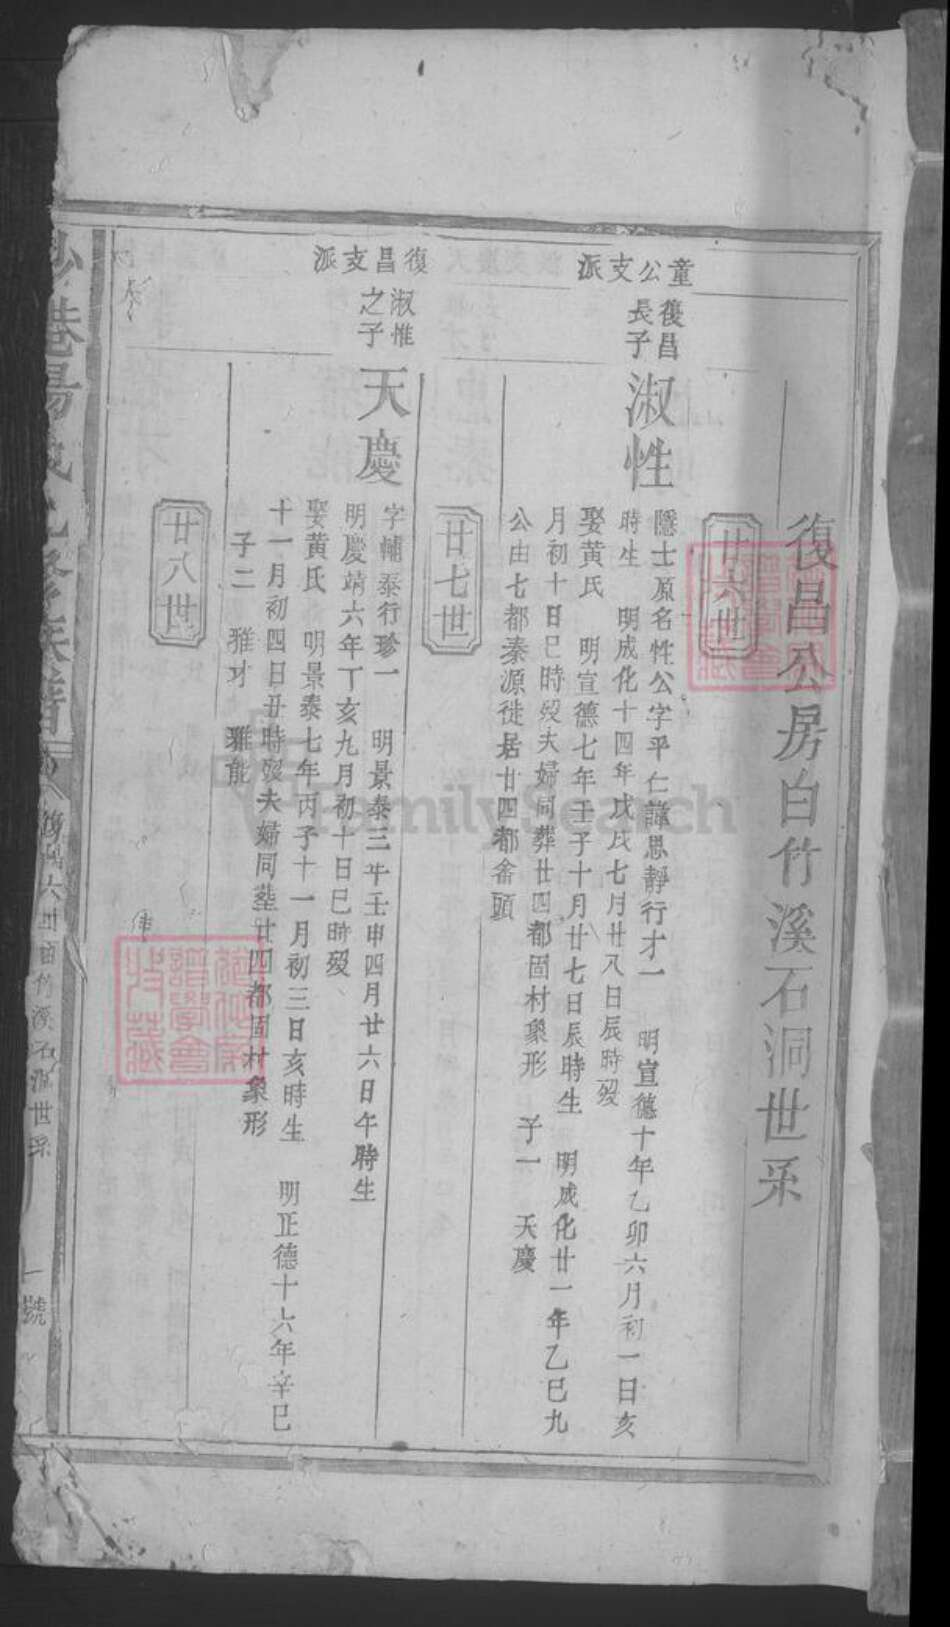 復昌公房白竹溪石洞世系
廿六世
童公支派
復昌
長子
淑性
隱士原名性公字平仁諱思靜行才一　明宣德十年乙卯六月初一日亥
時生　明成化十四年戊戌七月廿八日辰時歿
娶黄氏　明宣德七年壬子十月廿七日辰時生　明成化廿一年乙巳九
月初十日巳時歿夫婦同葬廿四都固村象形　子一　天慶
公由七都秦源徙居廿四都畲頭
廿七世
復昌支派
淑惟
之子
天慶
字輔泰行珍一　明景泰三年壬申四月廿六日午時生
明慶靖六年丁亥九月初十日巳時歿
娶黄氏　明景泰七年丙子十一月初三日亥時生　明正德十六年辛巳
十一月初四日丑時歿夫婦同塟廿四都固村象形
子二　雅才　雅能
廿八世
六世白竹溪石洞世系
一號
FamilySearch
譜學會
收藏